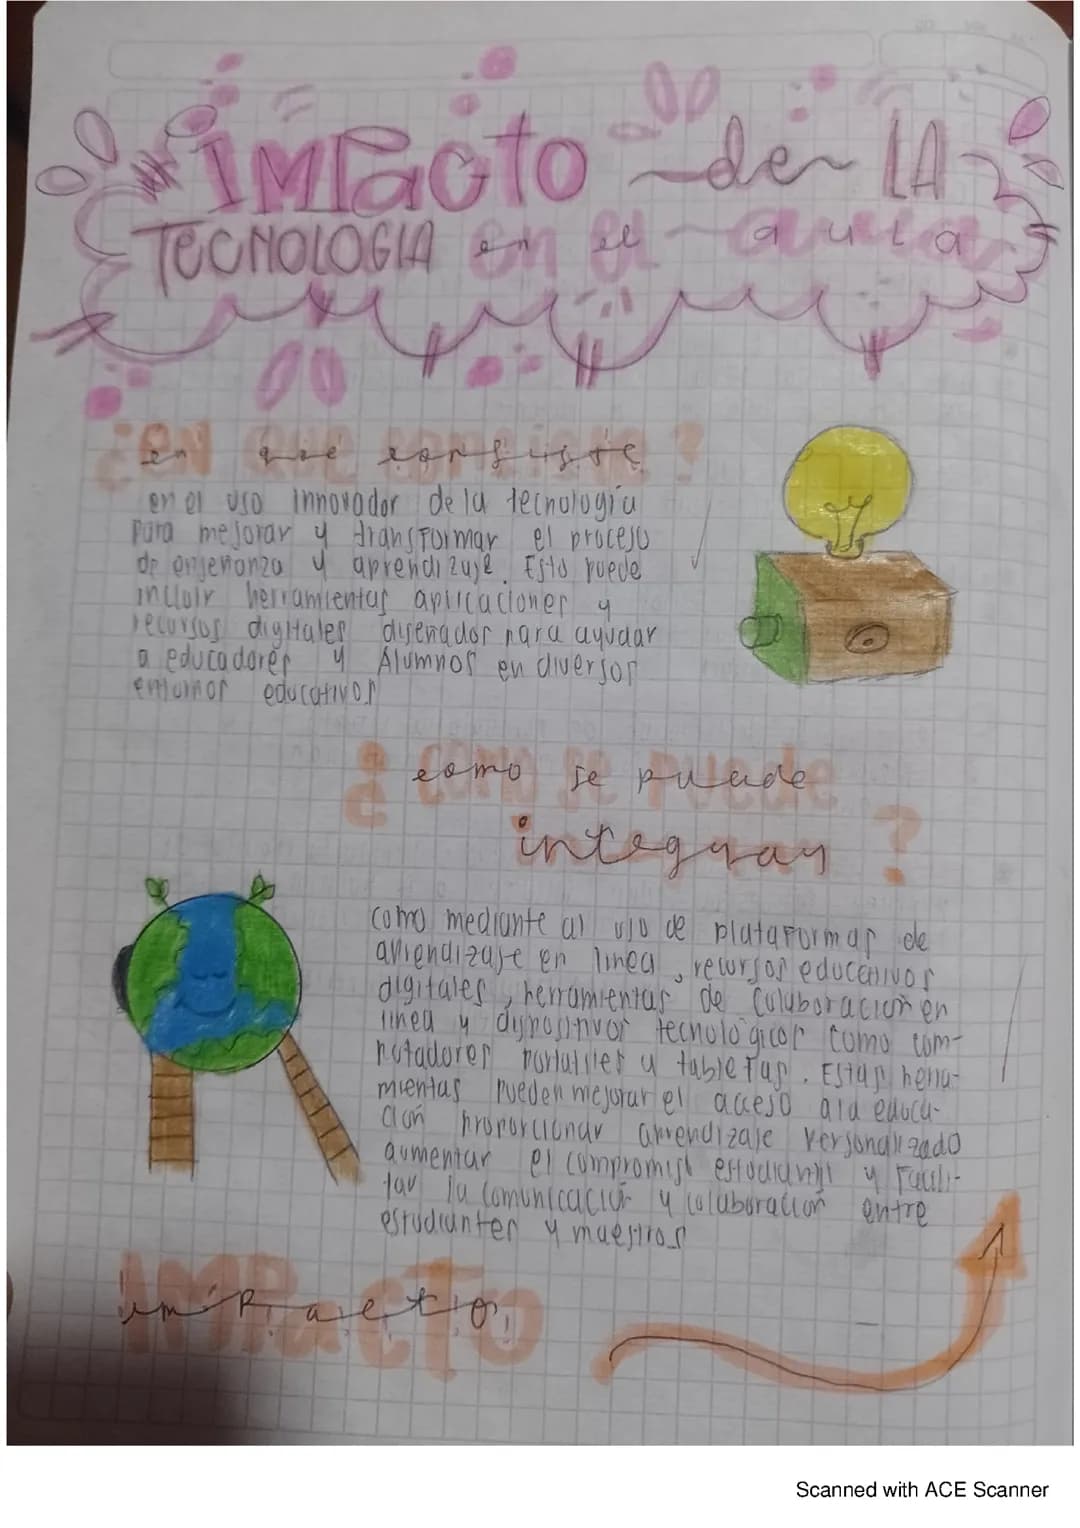 IMPacto de LA
TECNOLOGIA en el aula
¿en que consiste?
en el uso innovador de la tecnologia
para mejorar y transformar el proceso
de enseñanza y aprendizaje. Esto puede
incluir herramientas aplicaciones y
recursos digitales diseñador para ayudar
a educadores y Alumnos en diversos
entornos educativos
¿como se puede
integrar?
como mediante al uso de plataformas de
aprendizaje en linea, recursos educativos
digitales, herramientas de colaboracion en
linea y dispositivos tecnologicos como com-
putadores portatiles y tabletas. Estas herra-
mientas pueden mejorar el acceso a la educa-
cion proporcionar aprendizaje personalizado
aumentar el compromiso estudiantil y facili-
tar la comunicacion y colaboracion entre
estudiantes y maestros
IMPacto
Scanned with ACE Scanner